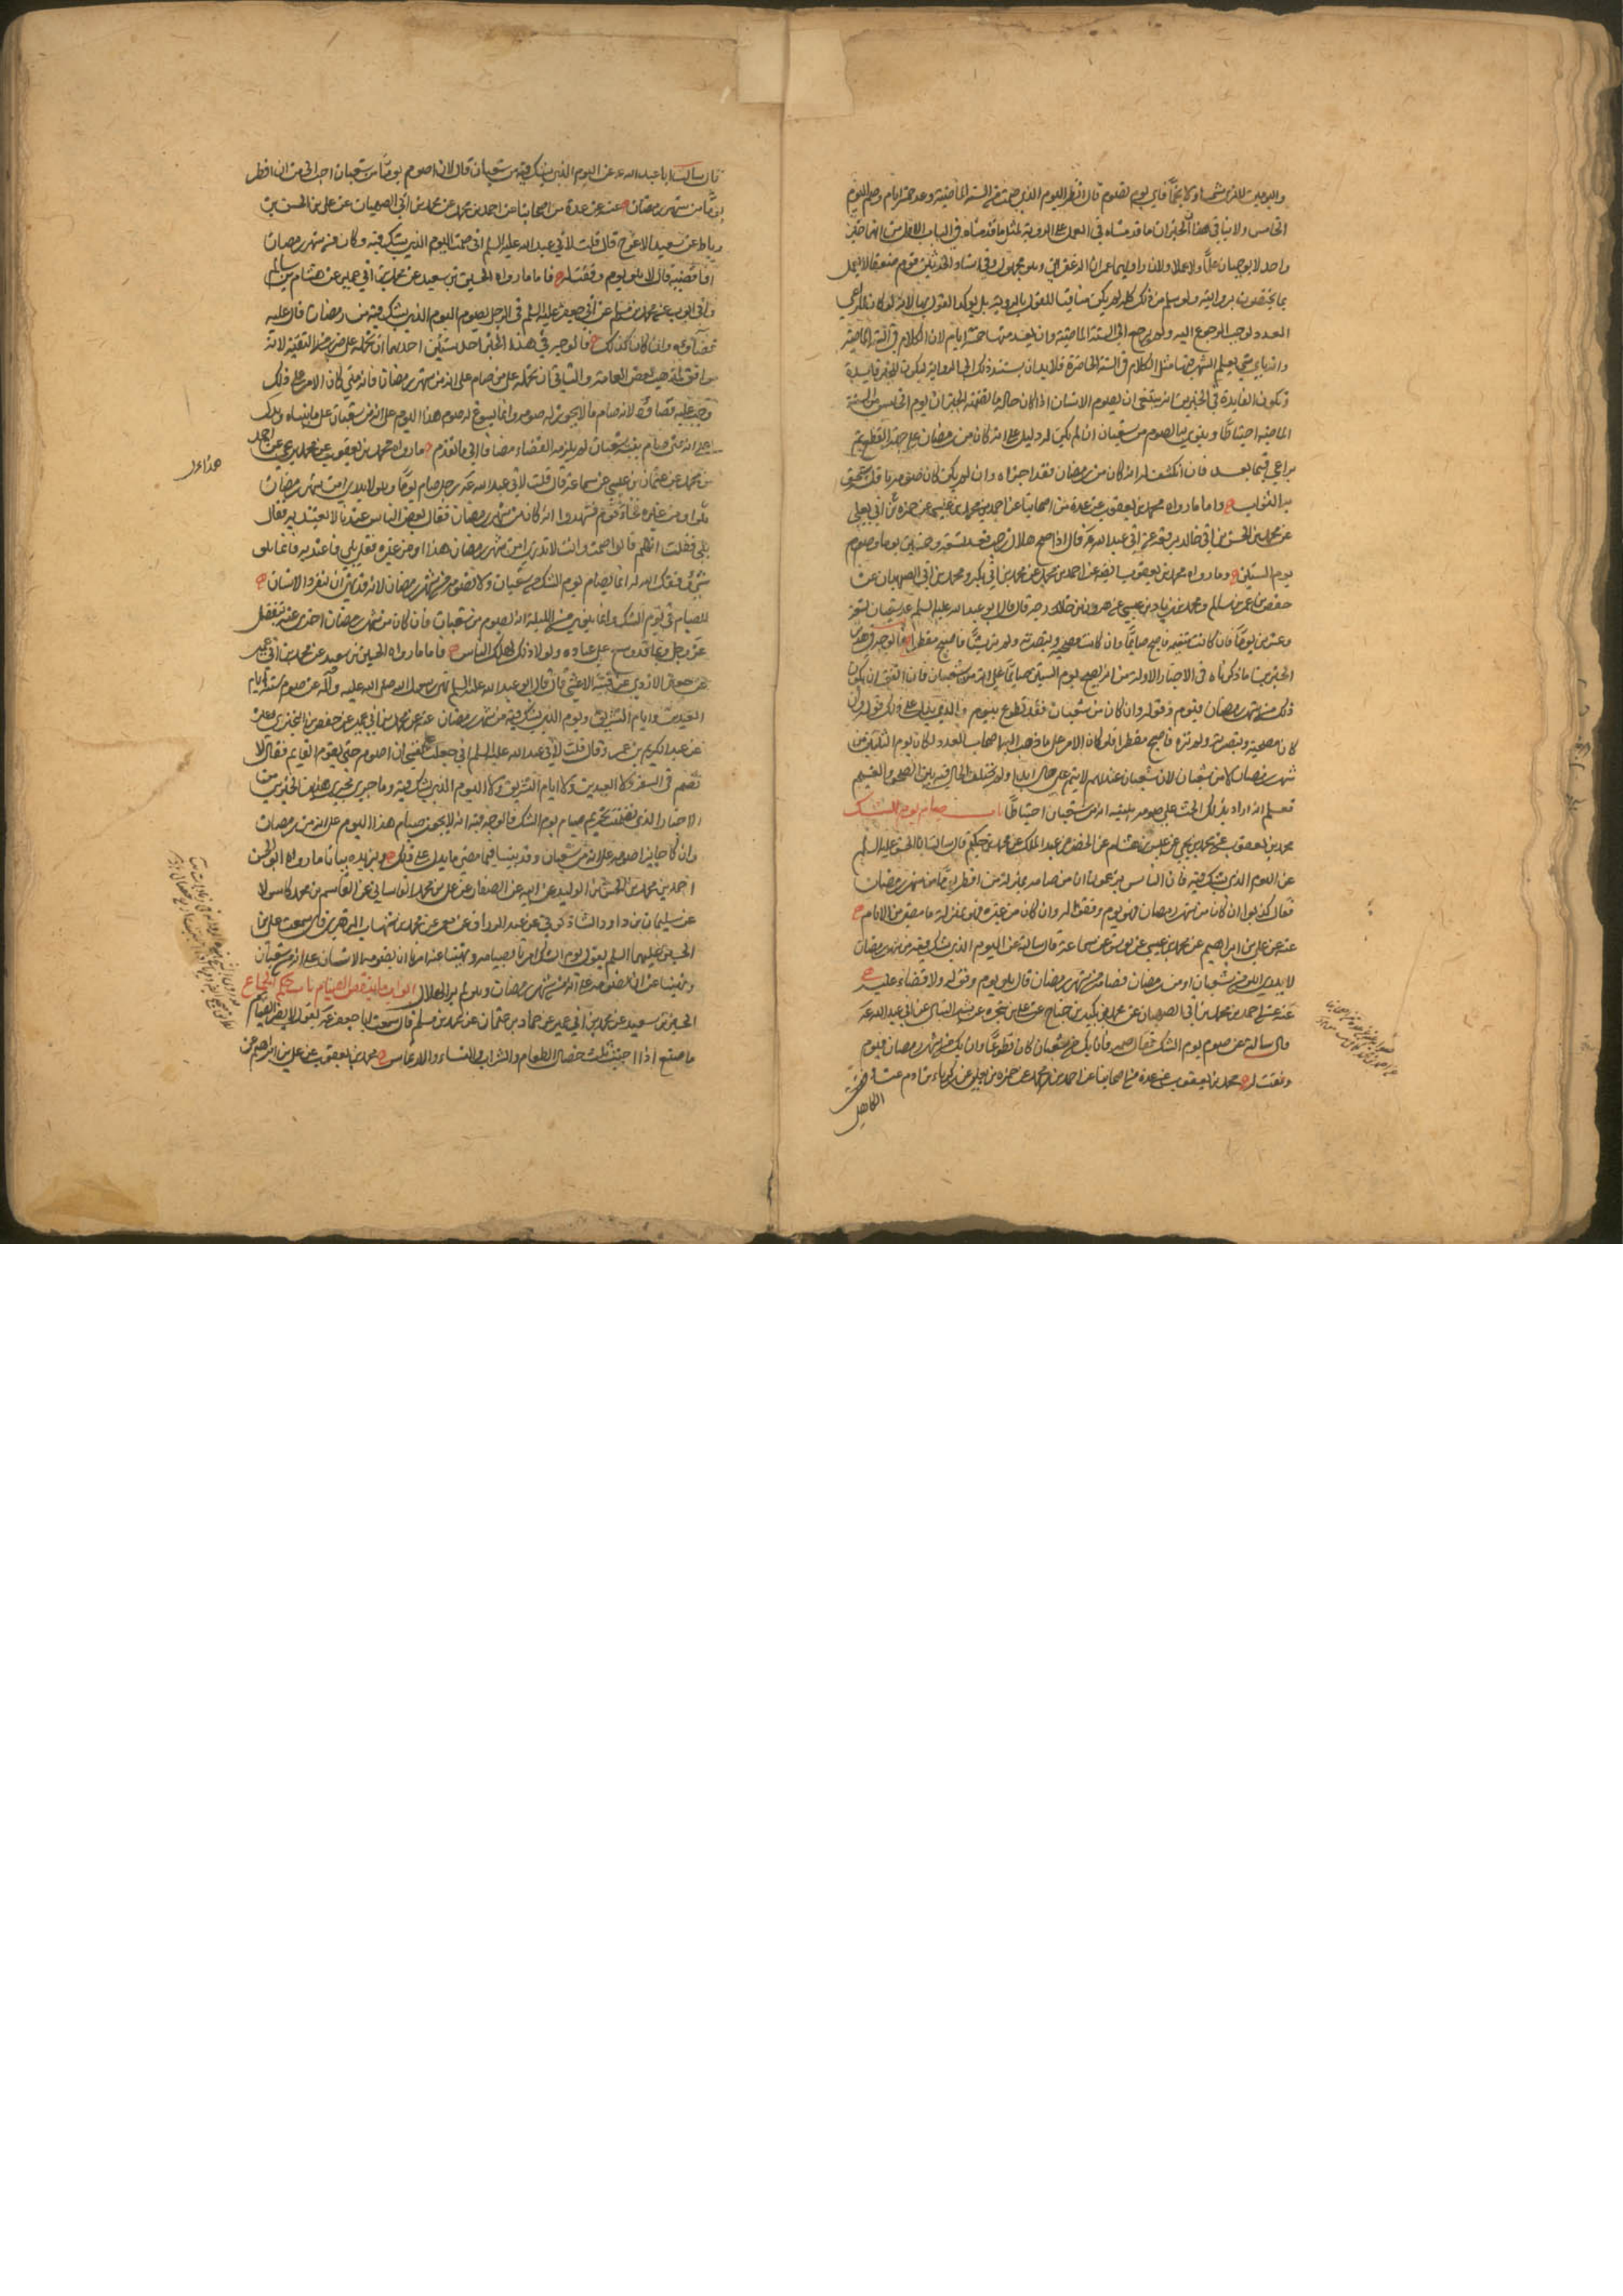 واليومين لا نرى شمسا ولا نجما فاي يوم نصوم قال انظر اليوم الذي صمت من السنة الماضية وعد خمسة ايام وصم اليوم
الخامس ولا ينافي هذان الخبران ما قدمناه في العمل على الروية لمثل ما قدمناه في الباب الاول من انهما خبر
واحد لا يوجبان علما ولا عملا ولان راويهما عمران الزعفراني وهو مجهول وفي اسناد الحديثين قوم ضعفا لا نعمل
بما يختصون بروايته ولو سلم من ذلك كله لم يكن منافيا للقول بالروية بل يوكد القول بها لانه لو كان المراعي
العدد لوجب الرجوع اليه ولم يرجع الى السنة الماضية وان يعد منها خمسة ايام لان الكلام في السنة الماضية
وانه باي شي يعلم الشهر فيها مثل الكلام في السنة الحاضرة فلا بد ان يستند ذلك الى الرواية ليكون للخبر فايدة
وتكون الفايدة في الخبرين انه ينبغي ان يصوم الانسان اذا كان حاله ما تضمنه الخبران يوم الخامس من السنة
الماضية احتياطا وينوي به الصوم من شعبان ان لم يكن له دليل على انه كان من رمضان على جهة القطع ثم
يراعي فيما بعد فان انكشف له انه كان من رمضان فقد اجزاه وان لم يكن كان صومه نافلة يستحق
به الثواب واما ما رواه محمد بن يعقوب عن عدة من اصحابنا عن احمد بن محمد بن عيسى عن حمزة بن ابي يعلى
عن محمد بن الحسن بن ابي خالد يرفعه عن ابي عبد الله ع قال اذا صح هلال رجب فعد تسعة وخمسين يوما وصم
يوم الستين وما رواه محمد بن يعقوب ايضا عن احمد بن محمد عن محمد بن ابي بكر ومحمد بن ابي الصهبان عن
حفص بن عمر بن سالم ومحمد بن زياد بن عيسى عن هرون بن خارجة قال قال ابو عبد الله عليه السلم عد شعبان تسعة
وعشرين يوما فان كانت متغيمة فاصبح صائما وان كانت مصحية وتبصرته ولم تر شيئا فاصبح مفطرا فالوجه في هذين
الخبرين ما ذكرناه في الاخبار الاولة من انه يصبح يوم الستين صايما على انه من شعبان فان اتفق ان يكون
ذلك من شهر رمضان فيوم وفق له وان كان من شعبان فقد تطوع بيوم والذي يدل على ذلك قوله وان
كان مصحية وتبصرته ولم تره فاصبح مفطرا فلو كان الامر على ما ذهب اليه اصحاب العدد لكان يوم الثلثين من
شهر رمضان لا من شعبان لان شعبان عندهم لا يتم على حال ابدا ولم يختلف الحال فيه بين الصحو والغيم
فعلم انه اراد بذلك الحث على صومه بنية انه من شعبان احتياطا باب صيام يوم الشك
محمد بن يعقوب عن محمد بن يحيى عن علي بن هشام عن الخضر بن عبد الملك عن محمد بن حكيم قال سالت ابا الحسن عليه السلم
عن اليوم الذي يشك فيه فان الناس يزعمون ان من صامه بمنزلة من افطر يوما من شهر رمضان
فقال كذبوا ان كان من شهر رمضان فهو يوم وفقوا له وان كان من غيره فهو بمنزلة ما مضى من الايام
عنه عن علي بن ابراهيم عن محمد بن عيسى عن يونس عن سماعة قال سالته عن اليوم الذي يشك فيه من شهر رمضان
لا يدري اهو من شعبان او من رمضان فصامه من شهر رمضان قال هو يوم وفق له ولا قضاء عليه
عنه عن احمد بن محمد بن ابي الصهبان عن محمد بن بكر بن جناح عن علي بن شجرة عن بشير النبال عن ابي عبد الله ع
قال سالته عن صوم يوم الشك فقال صمه فان يك من شعبان كان تطوعا وان يك من شهر رمضان فيوم
وفقت له محمد بن يعقوب عن عدة من اصحابنا عن احمد بن محمد عن حمزة بن يعلى عن زكريا بن ادم عن
الكاهلي
قال سالت ابا عبد الله ع عن اليوم الذي يشك فيه من شعبان قال لان اصوم يوما من شعبان احب الي من ان افطر
يوما من شهر رمضان عنه عن عدة من اصحابنا عن احمد بن محمد عن محمد بن ابي الصهبان عن علي بن الحسن بن
رباط عن سعيد الاعرج قال قلت لابي عبد الله عليه السلم اني صمت اليوم الذي يشك فيه وكان من شهر رمضان
افاقضيه قال لا هو يوم وفقت له فاما ما رواه الحسين بن سعيد عن محمد بن ابي عمير عن هشام بن سالم
وابي ايوب عن محمد بن مسلم عن ابي جعفر عليه السلم في الرجل يصوم اليوم الذي يشك فيه من رمضان قال عليه
قضاؤه وان كان كذلك فالوجه في هذا الخبر احد شيئين احدهما ان نحمله على ضرب من التقية لانه
موافق لمذهب بعض العامة والثاني ان نحمله على من صام على انه من شهر رمضان فانه متى كان الامر على ذلك
وجب عليه قضاؤه لانه صام ما لا يجوز له صومه وانما يسوغ له صوم هذا اليوم على انه من شعبان على ما بيناه ويدل
على انه متى صام بنية شعبان لم يلزمه القضاء مضافا الى ما تقدم ما رواه محمد بن يعقوب عن محمد بن يحيى عن احمد
بن محمد عن عثمان بن عيسى عن سماعة قال قلت لابي عبد الله ع رجل صام يوما وهو لا يدري امن شهر رمضان
هو او من غيره فجاء قوم فشهدوا انه كان من شهر رمضان فقال بعض الناس عندنا لا يعتد به فقال
بلى فقلت انهم قالوا صمت وانت لا تدري امن شهر رمضان هذا او من غيره فقال بلى فاعتد به فانما هو
شيء وفقك الله له انما يصام يوم الشك من شعبان ولا تصومه من شهر رمضان لانه قد نهي ان ينفرد الانسان
للصيام في يوم الشك وانما ينوي من الليلة انه يصوم من شعبان فان كان من شهر رمضان اجزى عنه بتفضل
عز وجل وبما قد وسع على عباده ولولا ذلك لهلك الناس فاما ما رواه الحسين بن سعيد عن محمد بن ابي عمير
عن جعفر الازدي عن قتيبة الاعشى قال قال ابو عبد الله عليه السلم نهى رسول الله صلى الله عليه وآله عن صوم ستة ايام
العيدين وايام التشريق ويوم الذي يشك فيه من شهر رمضان عنه عن محمد بن ابي عمير عن حفص بن البختري وغيره
عن عبد الكريم بن عمرو قال قلت لابي عبد الله عليه السلم اني جعلت على نفسي ان اصوم حتى يقوم القايم فقال لا
تصم في السفر ولا العيدين ولا ايام التشريق ولا اليوم الذي يشك فيه وما جرى مجرى هذين الخبرين من
الاخبار الذي تضمنت تحريم صيام يوم الشك فالوجه فيه انه لا يجوز صيام هذا اليوم على انه من رمضان
وان كان جايزا صومه على انه من شعبان وقد بينا فيما مضى ما يدل على ذلك ويزيده بيانا ما رواه ابو الحسن
احمد بن محمد بن الحسن بن الوليد عن ابيه عن الصفار عن علي بن محمد القاساني عن القاسم بن محمد كاسولا
عن سليمان بن داود الشاذكوني عن عبد الرزاق عن معمر عن محمد بن شهاب الزهري قال سمعت علي بن
الحسين عليهما السلم يقول يوم الشك امرنا بصيامه ونهينا عنه امرنا ان يصومه الانسان على انه من شعبان
ونهينا عن ان يصومه على انه من شهر رمضان وهو لم ير الهلال ابواب ما ينقض الصيام باب حكم الجماع
الحسين بن سعيد عن محمد بن ابي عمير عن حماد بن عثمان عن محمد بن مسلم قال سمعت ابا جعفر ع يقول لا يضر الصايم
ما صنع اذا اجتنب ثلث خصال الطعام والشراب والنساء والارتماس محمد بن يعقوب عن علي بن ابراهيم عن